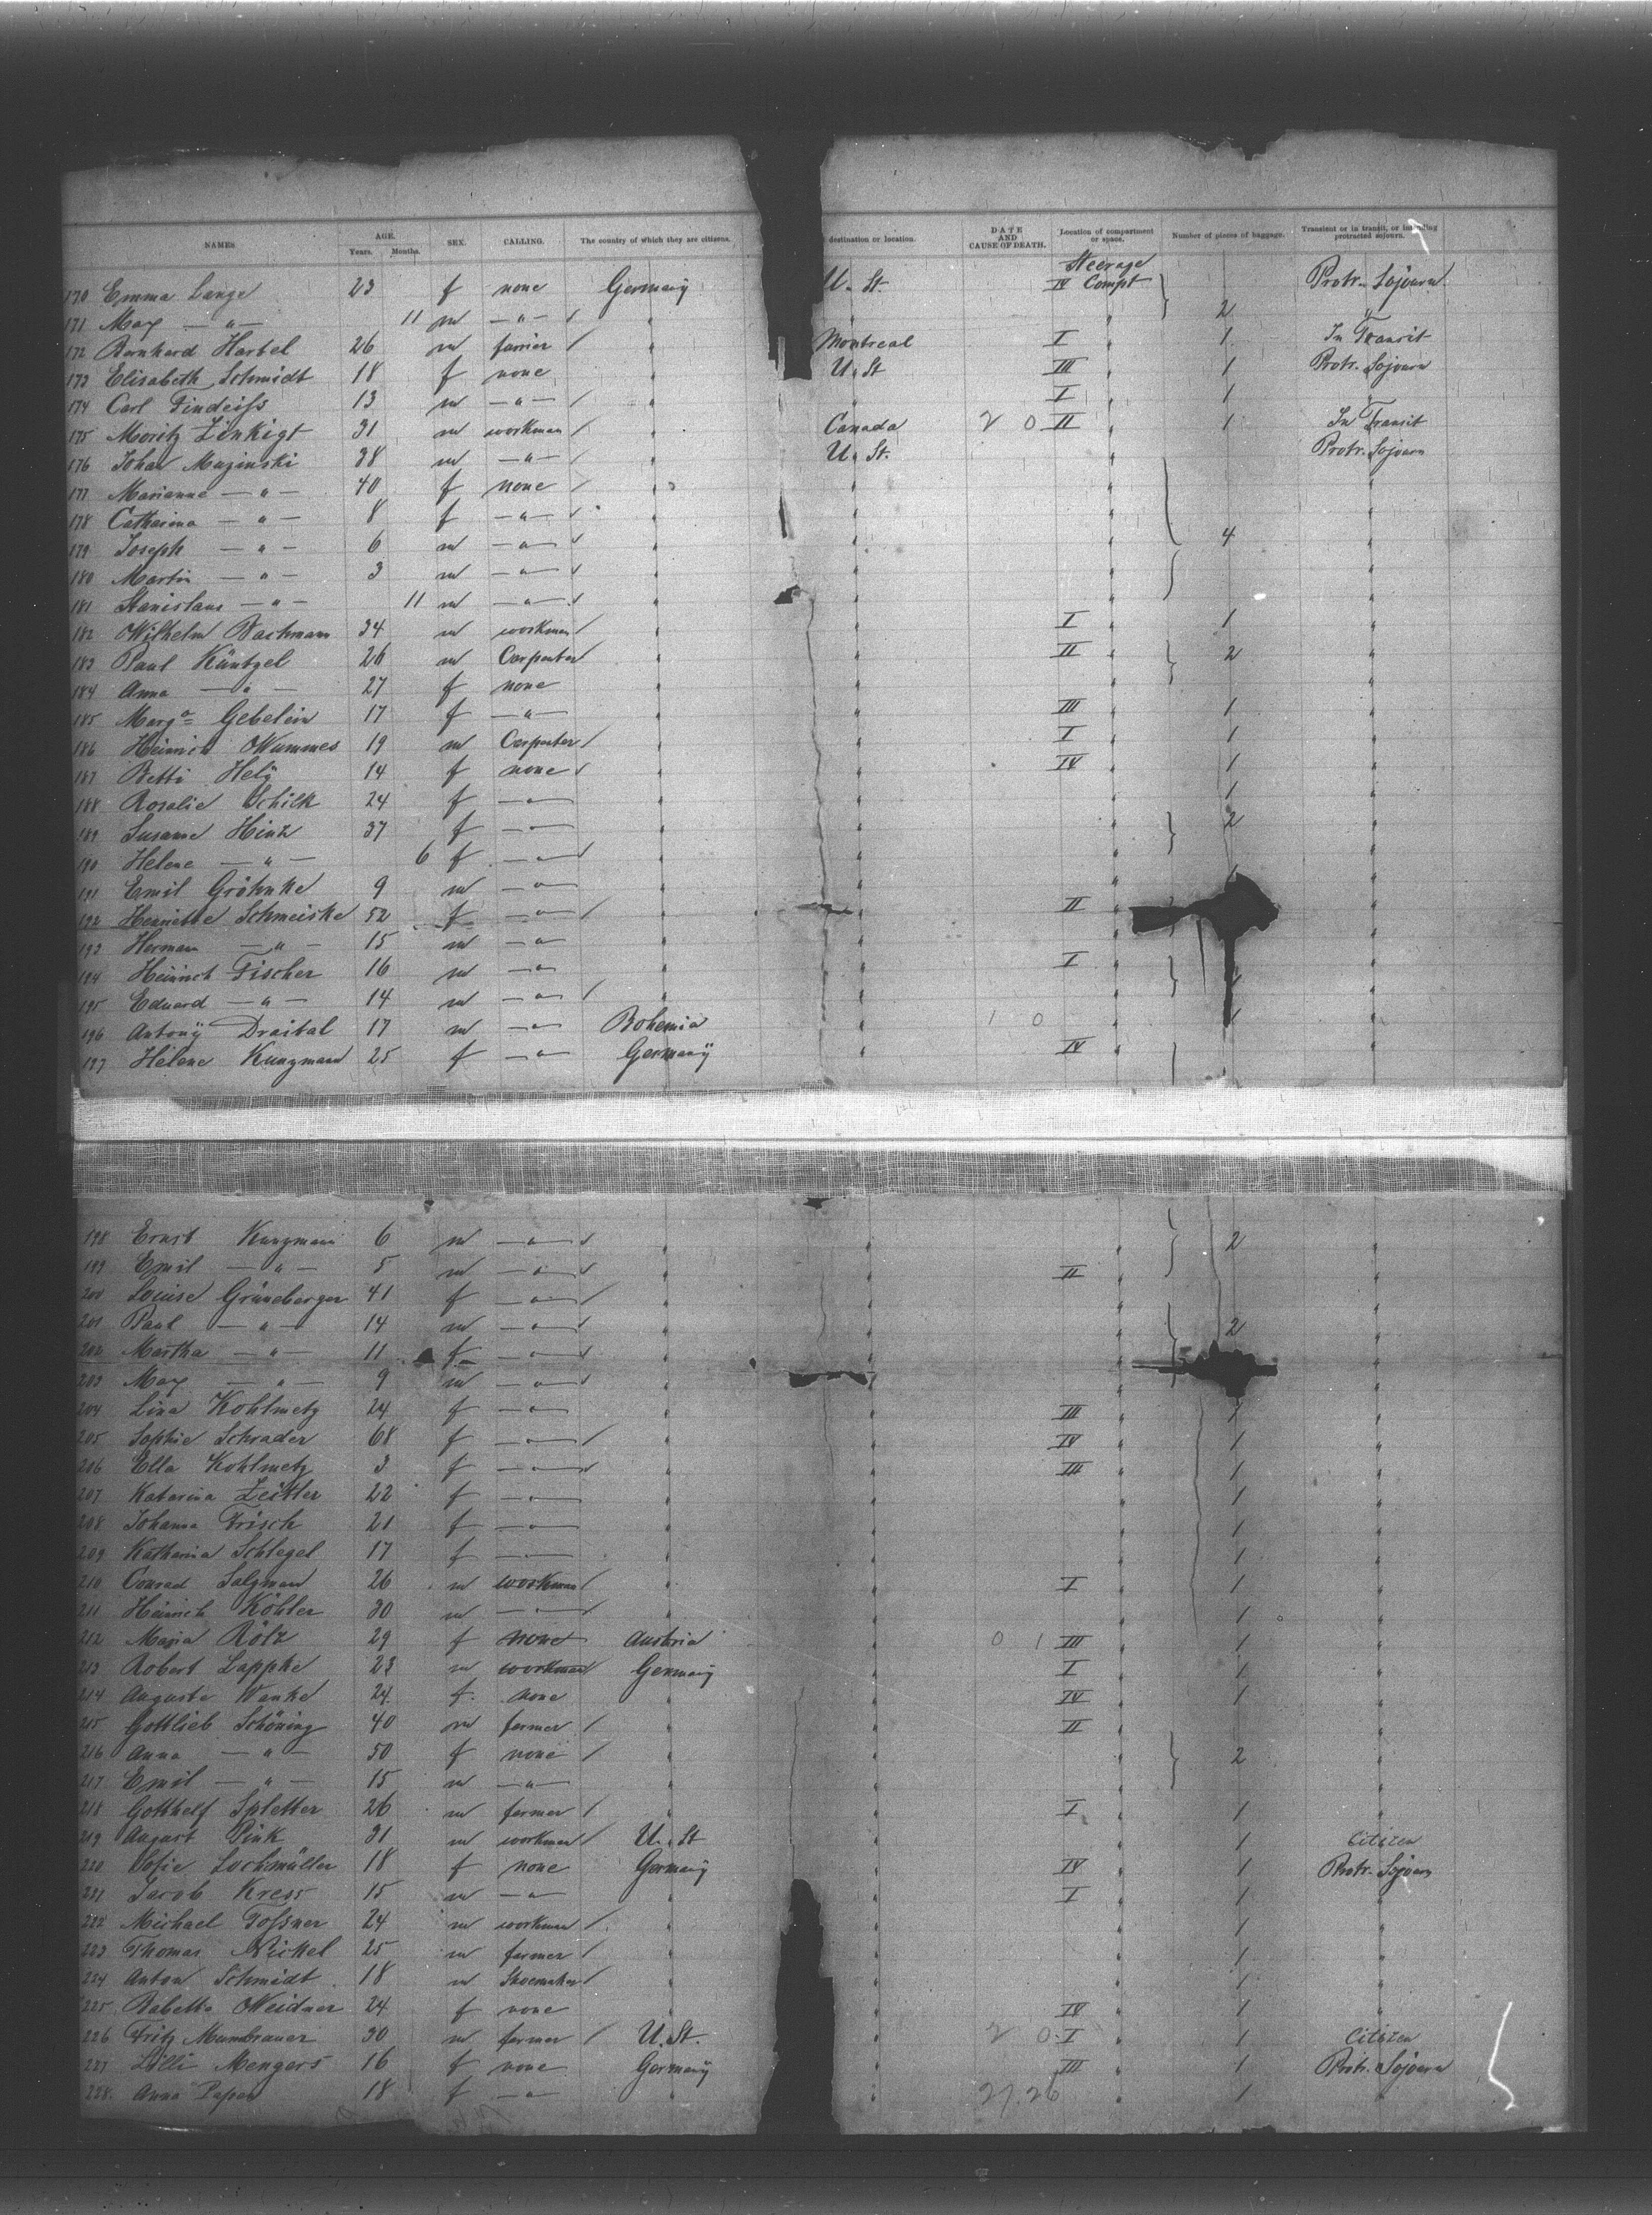 NAMES AGE. Years. Months. SEX. CALLING. The country of which they are citizens. destination or location. DATE AND CAUSE OF DEATH. Location of compartment or space. Number of pieces of baggage. Transient or in transit, or intending protracted sojourn.
170 Emma Lange 23 f none Germany U. St. Steerage IV Compt Protr. Sojourn
171 Max — " — 11 m — " — " " " 2 "
172 Bernhard Hartel 26 m farrier " Montreal I " 1 In Transit
173 Elisabeth Schmidt 18 f none " U. St III " 1 Protr. Sojourn
174 Carl Findeiss 13 m — " — " " I " 1 "
175 Moritz Zinkigt 31 m workman " Canada 2 0 II " 1 In Transit
176 Johan Muzinski 38 m — " — " U. St. " Protr. Sojourn
177 Marianna — " — 40 f none " " " "
178 Catharina — " — 8 f — " — " " " "
179 Joseph — " — 6 m — " — " " " 4 "
180 Martin — " — 3 m — " — " " " "
181 Stanislaus — " — 11 m — " — " " " "
182 Wilhelm Bachmann 34 m workman " " I " 1 "
183 Paul Küntzel 26 m Carpenter " " II " 2 "
184 Anna — " — 27 f none " " " "
185 Marga Gebelein 17 f — " — " " III " 1 "
186 Heinrich Wummes 19 m Carpenter " " I " 1 "
187 Betti Helÿ 14 f none " " IV " 1 "
188 Rosalie Schilk 24 f — " — " " " 1 "
189 Susanne Hinz 37 f — " — " " " 2 "
190 Helene — " — 6 f — " — " " " "
191 Emil Gröhnke 9 m — " — " " " "
192 Henriette Schmeiske 52 f — " — " " II " "
193 Herman — " — 15 m — " — " " " "
194 Heinrich Fischer 16 m — " — " " I " "
195 Eduard — " — 14 m — " — " " " "
196 Antonÿ Draital 17 m — " — Bohemia " 1 0 " 1 "
197 Helene Kunzmann 25 f — " — Germany " IV " "
198 Ernst Kunzmann 6 m — " — " " " 2 "
199 Emil — " — 5 m — " — " " II " "
200 Louise Grüneberger 41 f — " — " " " "
201 Paul — " — 14 m — " — " " " 2 "
202 Martha — " — 11 f — " — " " " "
203 Max — " — 9 m — " — " " " "
204 Lina Kohlmetz 24 f — " — " " III " 1 "
205 Sophie Schrader 68 f — " — " " IV " 1 "
206 Ella Kohlmetz 3 f — " — " " III " 1 "
207 Katarina Zeitler 22 f — " — " " " 1 "
208 Johanna Frisch 21 f — " — " " " 1 "
209 Katharina Schlegel 17 f — " — " " " 1 "
210 Conrad Salzmann 26 m workman " " I " 1 "
211 Heinrich Köhler 30 m — " — " " " 1 "
212 Maria Rölz 29 f none Austria " 0 1 III " 1 "
213 Robert Lappke 23 m workman Germany " I " 1 "
214 Auguste Wanke 24 f none " " IV " 1 "
215 Gottlieb Schöning 40 m farmer " " II " "
216 Anna — " — 50 f none " " " 2 "
217 Emil — " — 15 m — " — " " " "
218 Gotthelf Spletter 26 m farmer " " I " 1 "
219 August Pink 31 m workman U. St " " 1 Citizen
220 Sofie Lochmüller 18 f none Germany " IV " 1 Protr. Sojourn
221 Jacob Kress 15 m — " — " " I " 1 "
222 Michael Fossner 24 m workman " " " 1 "
223 Thomas Nickel 25 m farmer " " " 1 "
224 Anton Schmidt 18 m Shoemaker " " " 1 "
225 Babetta Weidner 24 f none " " IV " 1 "
226 Fritz Mumbrauer 30 m farmer U. St. " 2 0 I " 1 Citizen
227 Lilli Mengers 16 f none Germany " III " 1 Protr. Sojourn
228 Anna Papen 18 f — " — " " 27.26 " 1 "